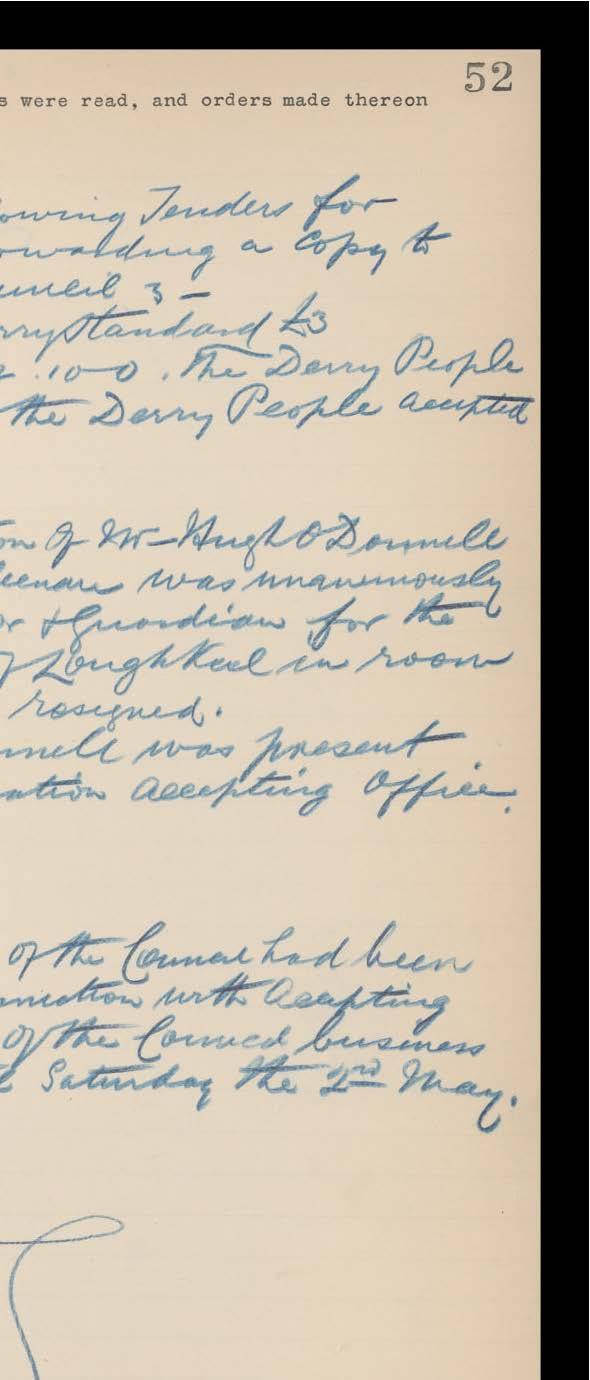 52
s were read, and orders made thereon
owing Tenders for
orwarding a copy to
uncil 3 –
rry Standard £3
2.10-0. The Derry People
the Derry People accepted
on of Mr Hugh O'Donnell
was unanimously
or & Guardian for the
of Lough Keel in room
resigned.
nnell was present
ration Accepting Office.
of the Council had been
nnection with Accepting
of the Council business
Saturday the 2nd May.